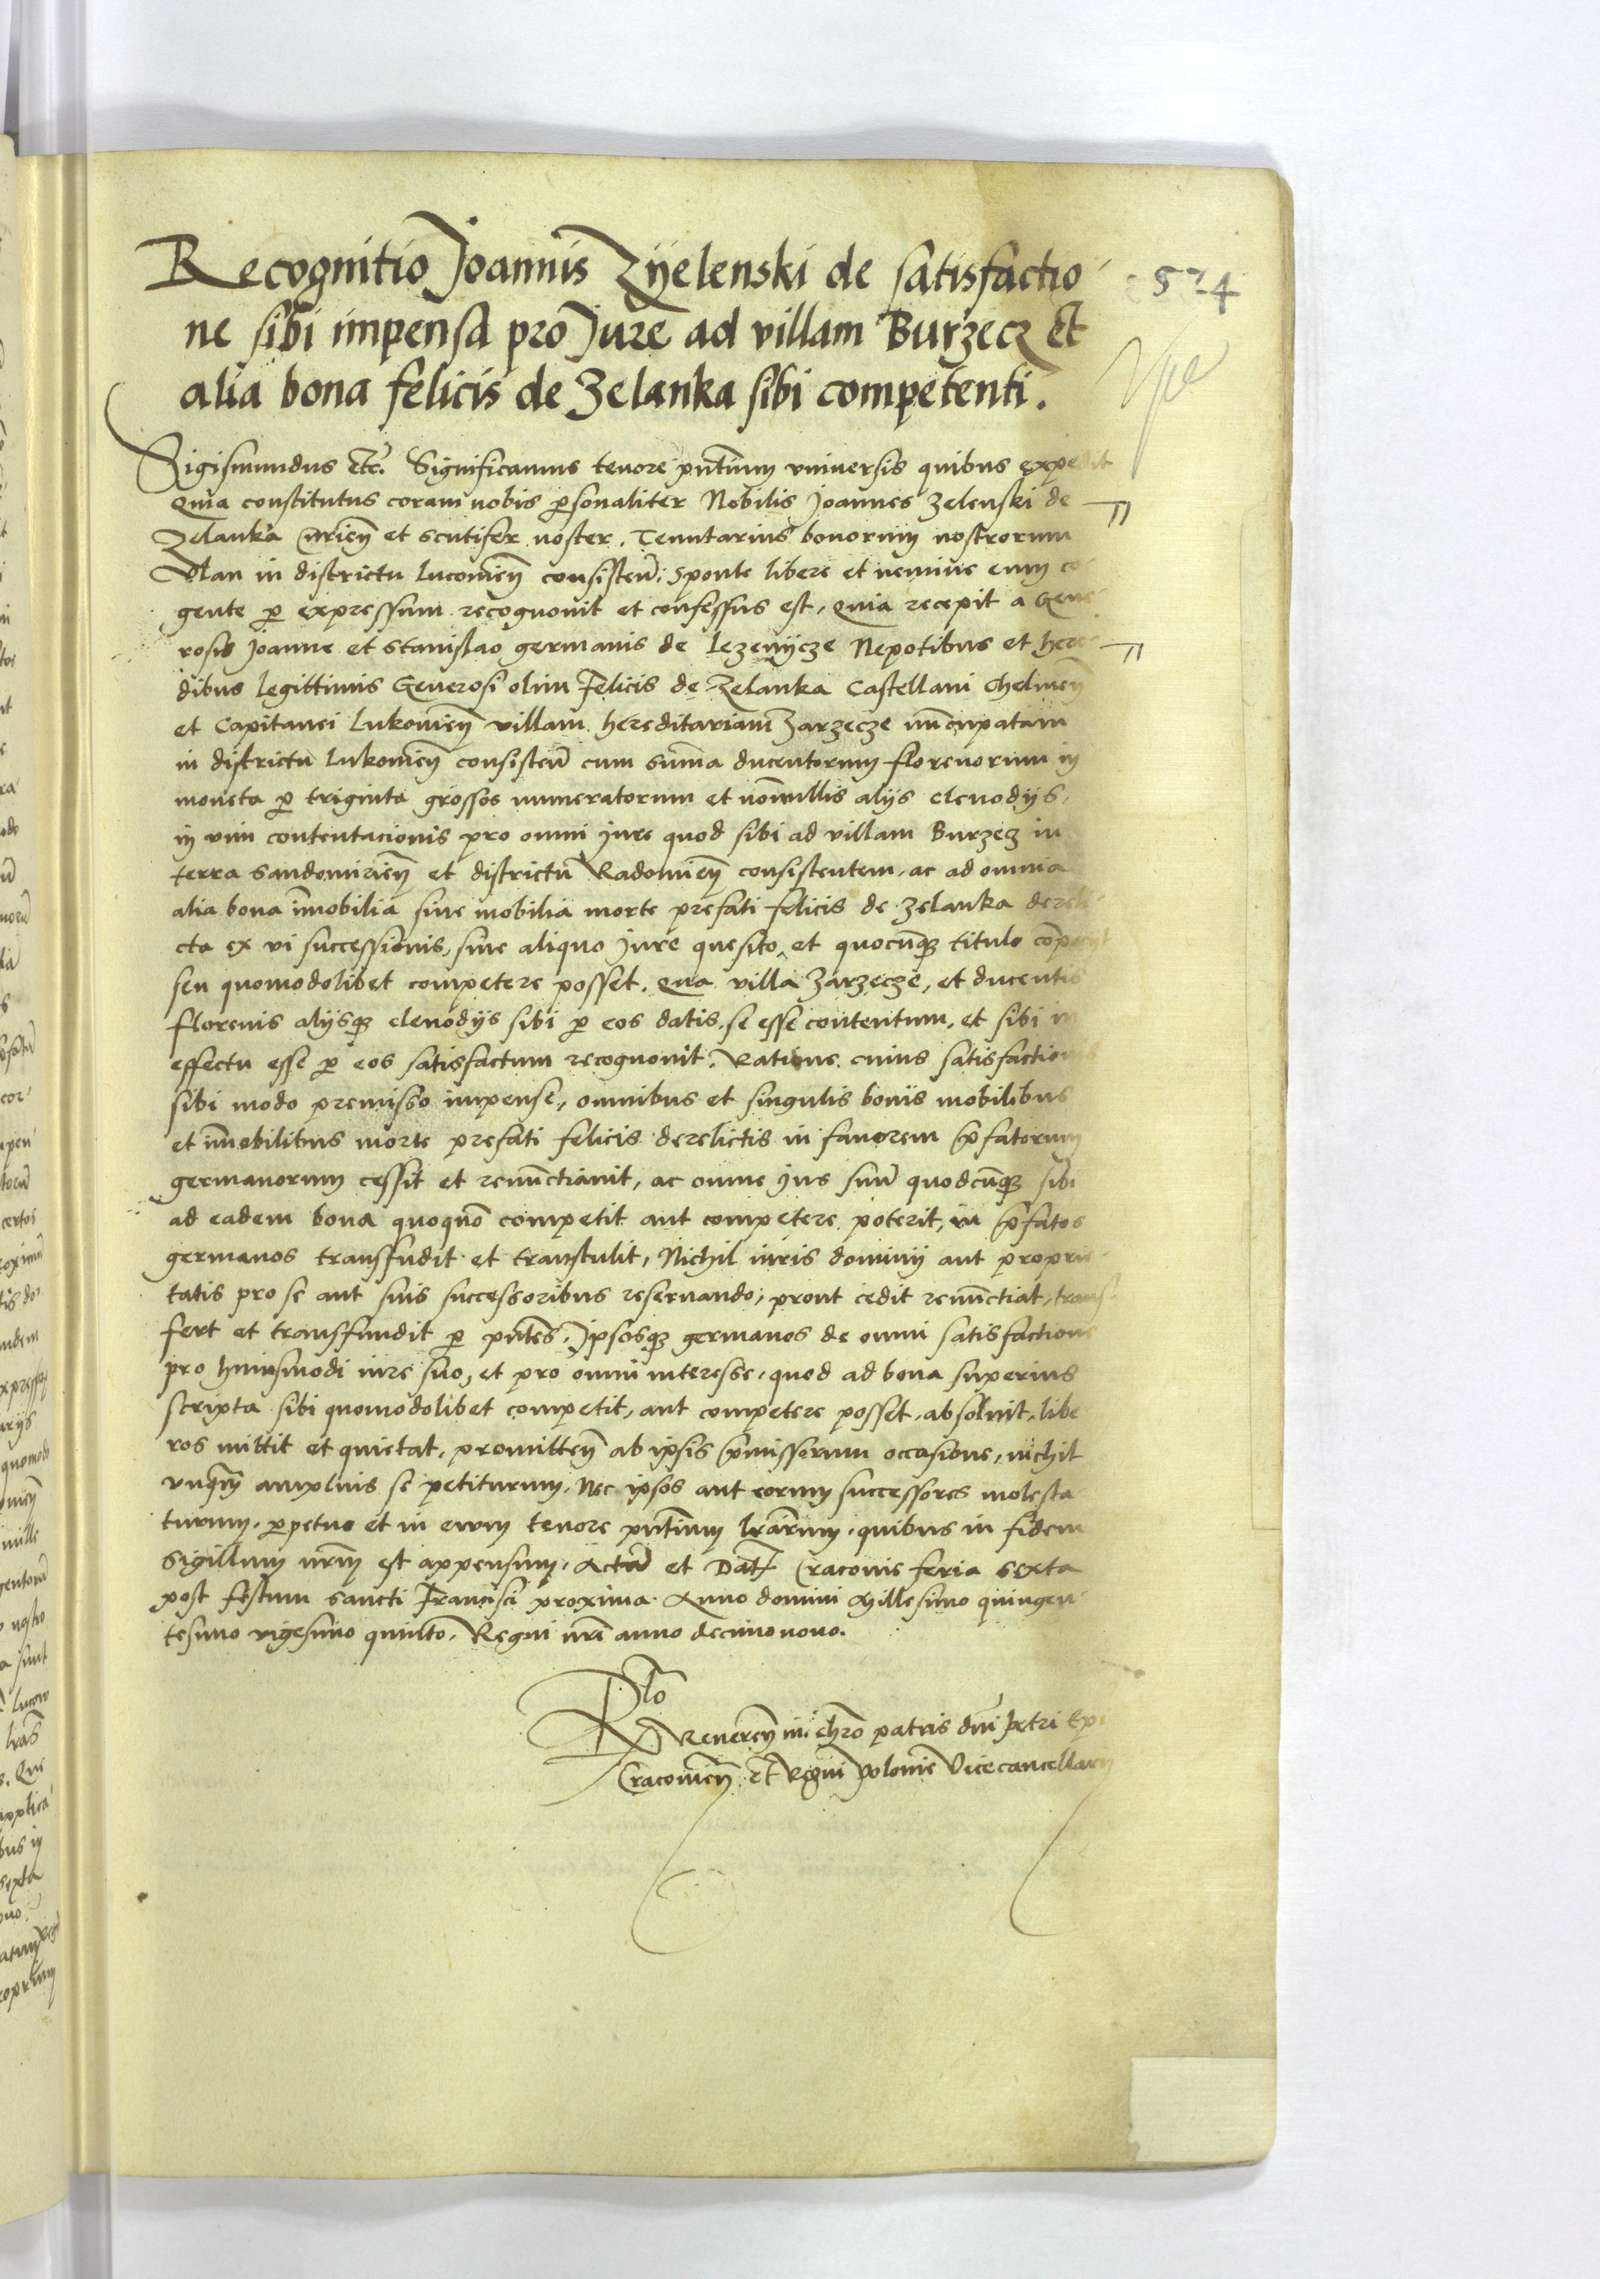 Recognitio Joannis Zÿelenski de satisfactio
524
ne sibi impensa pro Jure ad villam Burzecz et
alia bona felicis de Zelanka sibi competenti.
Sigismundus etc. Significamus tenore pñtium vniuersis quibus expedit
Quia constitutus coram nobis p̱sonaliter Nobilis Joannes Zelenski de
Zelanka Curieñ et scutifer noster. Tenutarius bonorum nostrorum
Vlan in districtu Lucovieñ consisteñ. Sponte libere et nemine eum co
gente p̱ expressum recognouit et confessus est, quia recepit a Gene
rosis Joanne et Stanislao germanis de Lezenÿcze Nepotibus et here
dibus legittimis Generosi olim Felicis de Zelanka Castellani Chelmeñ
et Capitanei Lukovieñ villam hereditariam Zarzecze nũcupatam
in districtu Lukovieñ consisteñ cum sum̃a ducentorum florenorum in
moneta p̱ triginta grossos numeratorum et nõnullis alijs clenodijs,
in vim contentacionis pro omni jure quod sibi ad villam Burzecz in
terra Sandomirieñ et districtũ Radomieñ consistentem, ac ad omnia
alia bona im̃obilia siue mobilia morte prefati felicis de Zelanka dereli
cta ex vi successionis, siue aliquo jure quesito et quocũq titulo cõpetijt
seu quomodolibet competere posset. Qua villa Zarzecze, et ducentis
florenis alijsq clenodijs sibi p̱ eos datis, se esse contentum, et sibi in
effectu esse p̱ eos satisfactum recognouit. Ratione cuius satisfactionis
sibi modo premisso impense, omnibus et singulis bonis mobilibus
et im̃obilibus morte prefati felicis derelictis in fauorem p̃fatorum
germanorum cessit et renũctiauit, ac omne jus suũ quodcũq sibi
ad eadem bona quoquõ competit aut competere poterit, in p̃fatos
germanos transfudit et transtulit, Nichil iuris dominij aut proprie
tatis pro se aut suis successoribus reseruando, prout cedit renũctiat, trans
fert et transfundit p̱ pñtes. Ipsosq germanos de omni satisfactione
pro huiusmodi iure suo, et pro omni interesse, quod ad bona superius
scripta sibi quomodolibet competit, aut competere posset, absoluit, libe
ros mittit et quietat, promitteñ ab ipsis p̃missorum occasione, nichil
vnq̃m amplius se petiturum. Nec ipsos aut eorum successores molesta
turum, p̱petuo et in evum tenore pñtium lr̃arum, quibus in fidem
Sigillum nr̃m est appensum. Actũ et Dat̃ Cracovie feria sexta
post festum sancti Francisci proxima. Anno domini Millesimo quingen
tesimo vigesimo quinto. Regni nr̃i anno decimonono.
Rlo
Reuereñ in chr̃o patris dñi Petri Epi
Cracovieñ et Regni Polonie Vicecancellarij